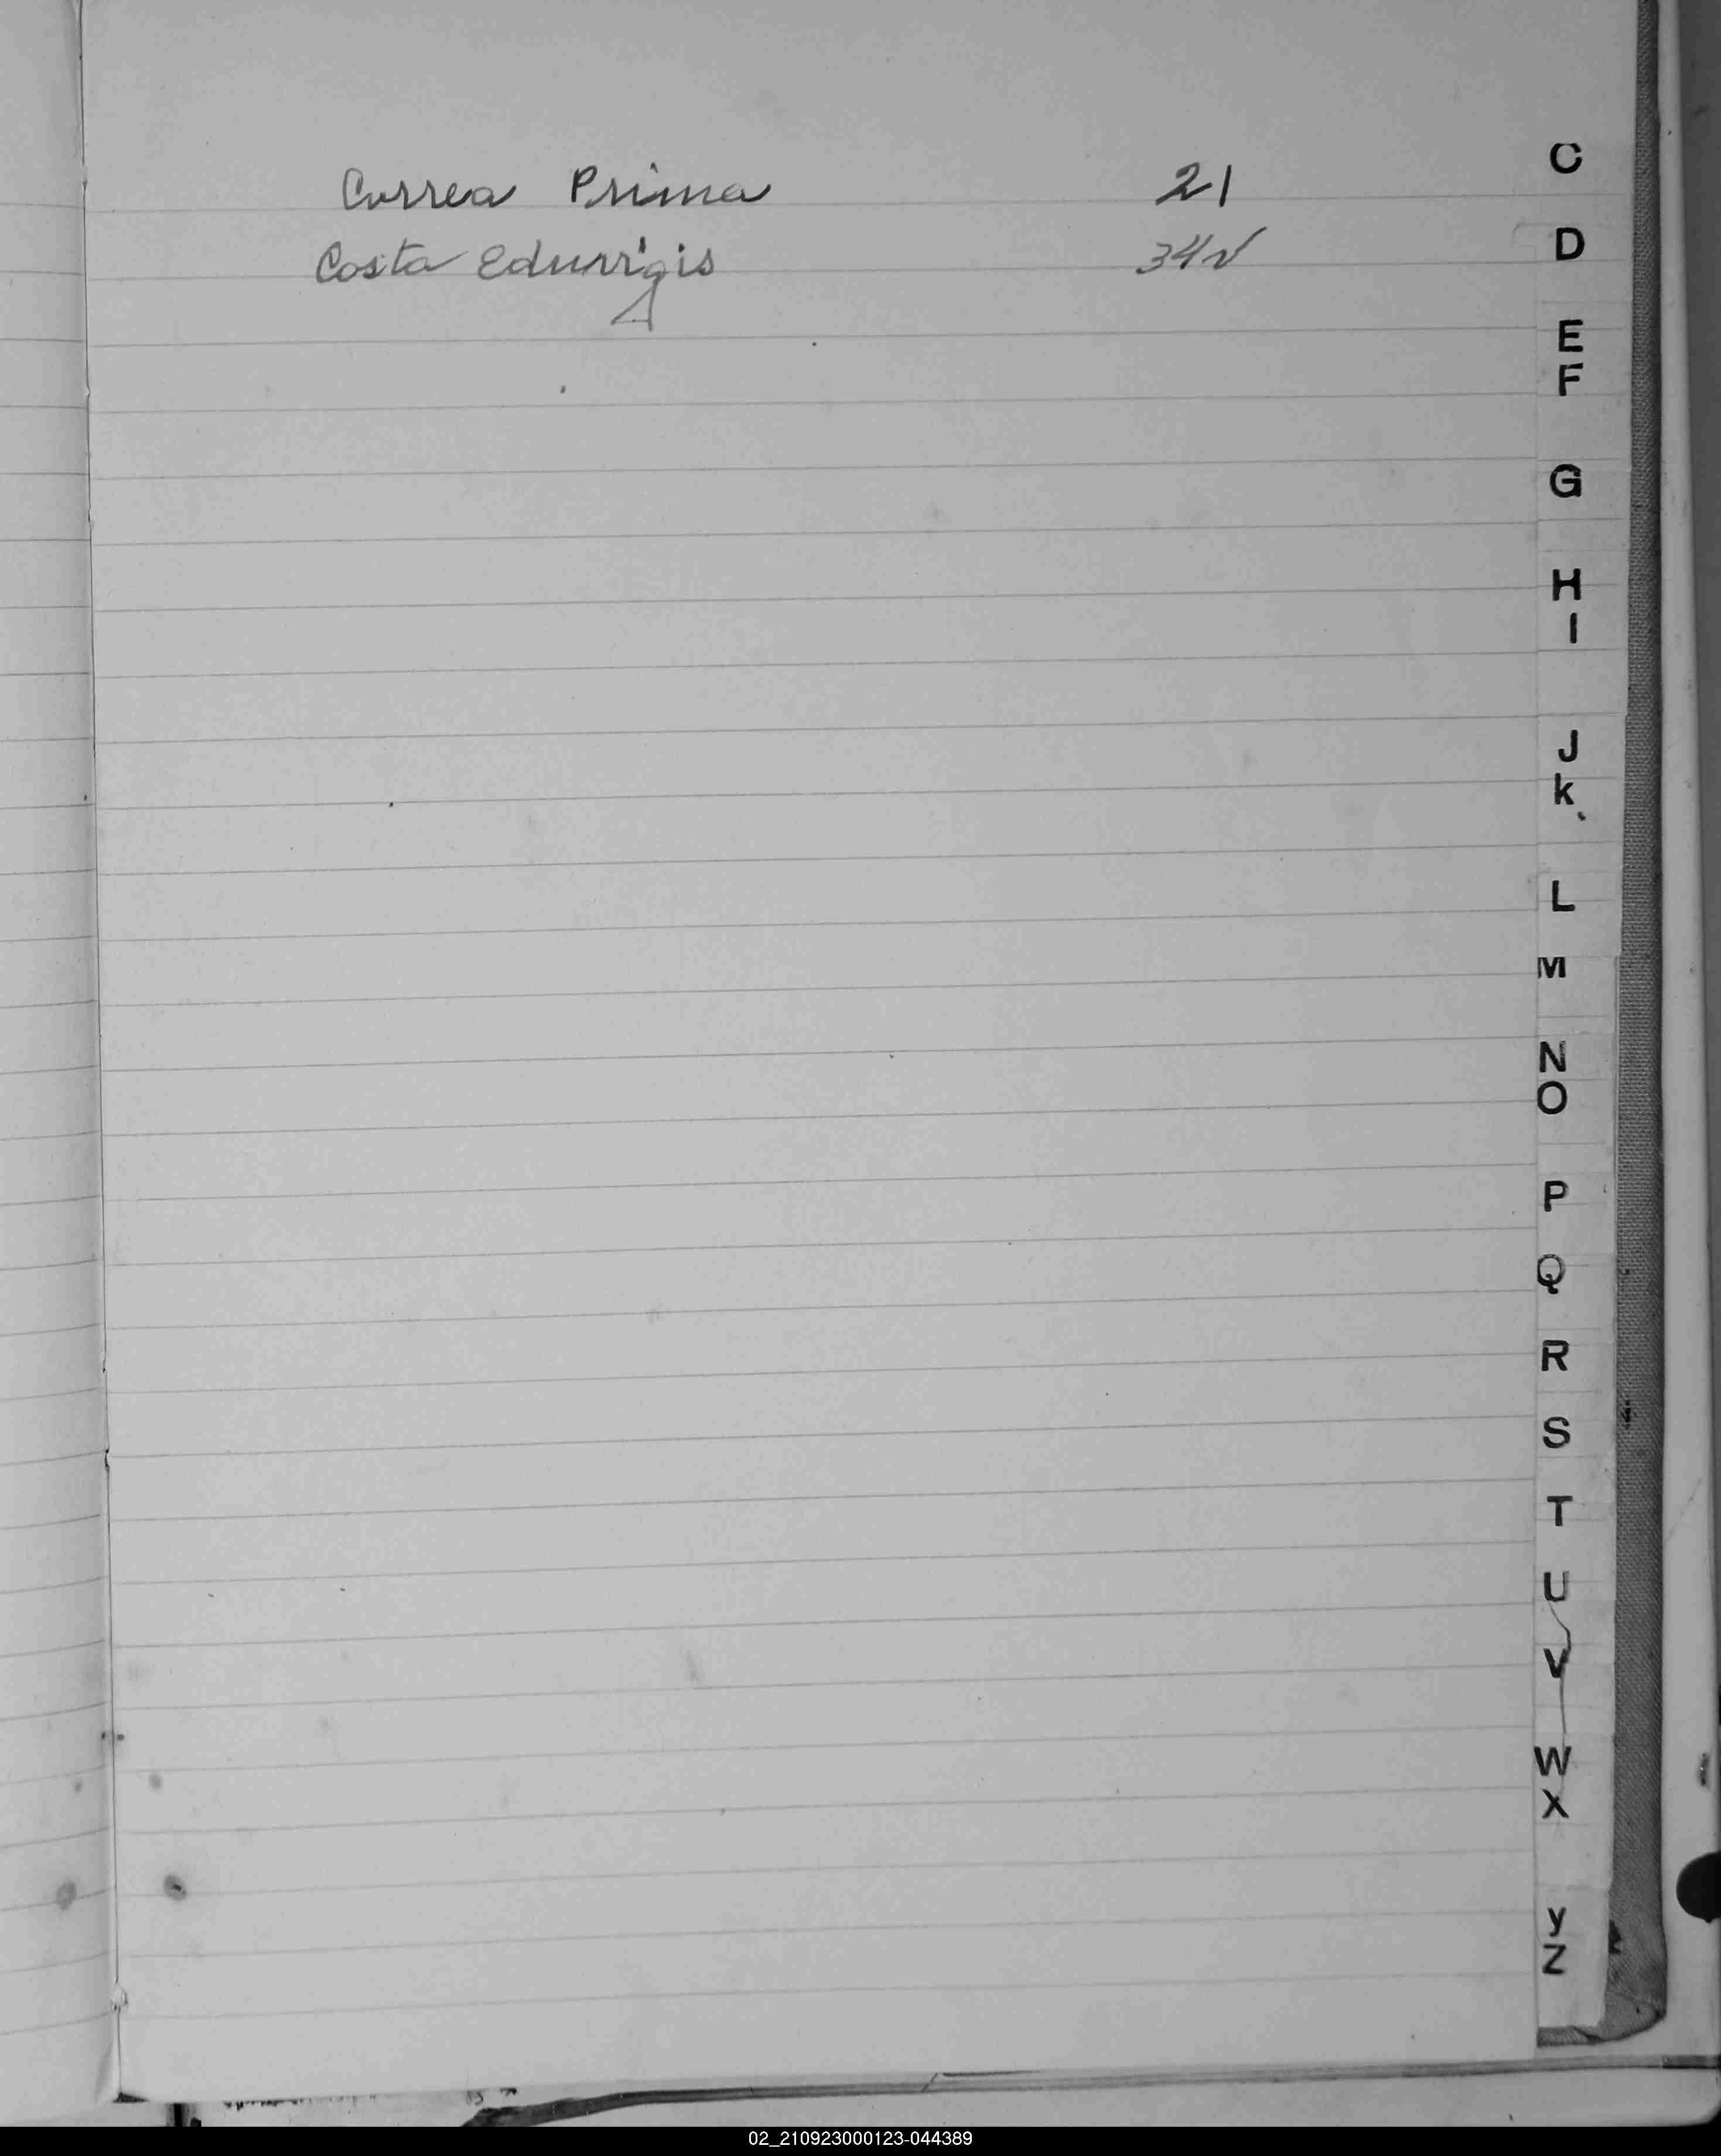 Correa Prima 21
Costa Eduvigis 34v
C
D
E
F
G
H
I
J
K
L
M
N
O
P
Q
R
S
T
U
V
W
X
Y
Z
02_210923000123-044389